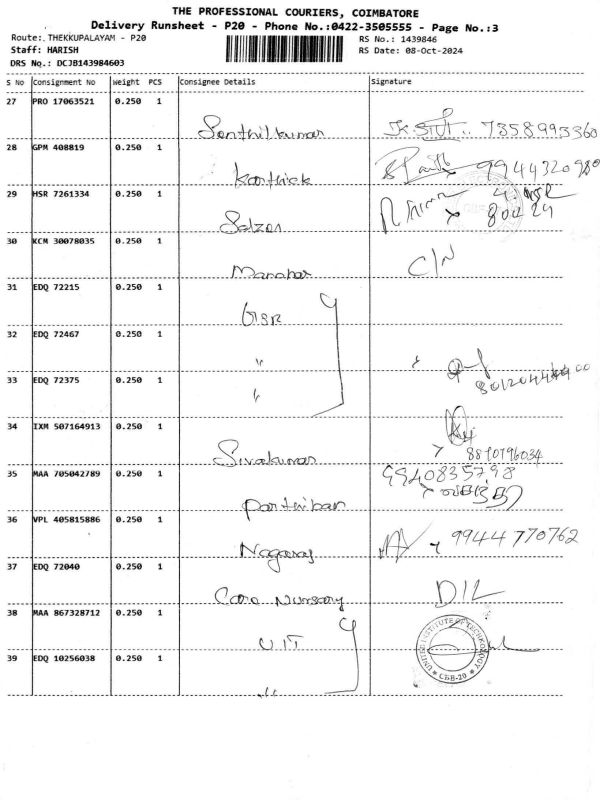 THE PROFESSIONAL COURIERS, COIMBATORE
Delivery Runsheet - P20 - Phone No.:0422-3505555 - Page No.:3
Route: THEKKUPALAYAM - P20
RS No.: 1439846
Staff: HARISH
RS Date: 08-Oct-2024
DRS No.: DCJB143984603
S No Consignment No Weight PCS Consignee Details Signature
27 PRO 17063521 0.250 1
Senthilkumar 7358995360
28 GPM 408819 0.250 1
Karthick 9944320980
29 HSR 7261334 0.250 1
Salzer 80429
30 KCM 30078035 0.250 1
Manohar C/N
31 EDQ 72215 0.250 1
GSR
32 EDQ 72467 0.250 1
"
33 EDQ 72375 0.250 1
"
34 IXM 507164913 0.250 1
Sivakumar 8870796034
35 MAA 705042789 0.250 1
9940835798
Parthiban
36 VPL 405815886 0.250 1
Nagaraj 9944770762
37 EDQ 72040 0.250 1
Cara Nursary D/L
38 MAA 867328712 0.250 1
UIT
UNITED INSTITUTE OF TECHNOLOGY
CBE-20
39 EDQ 10256038 0.250 1
"